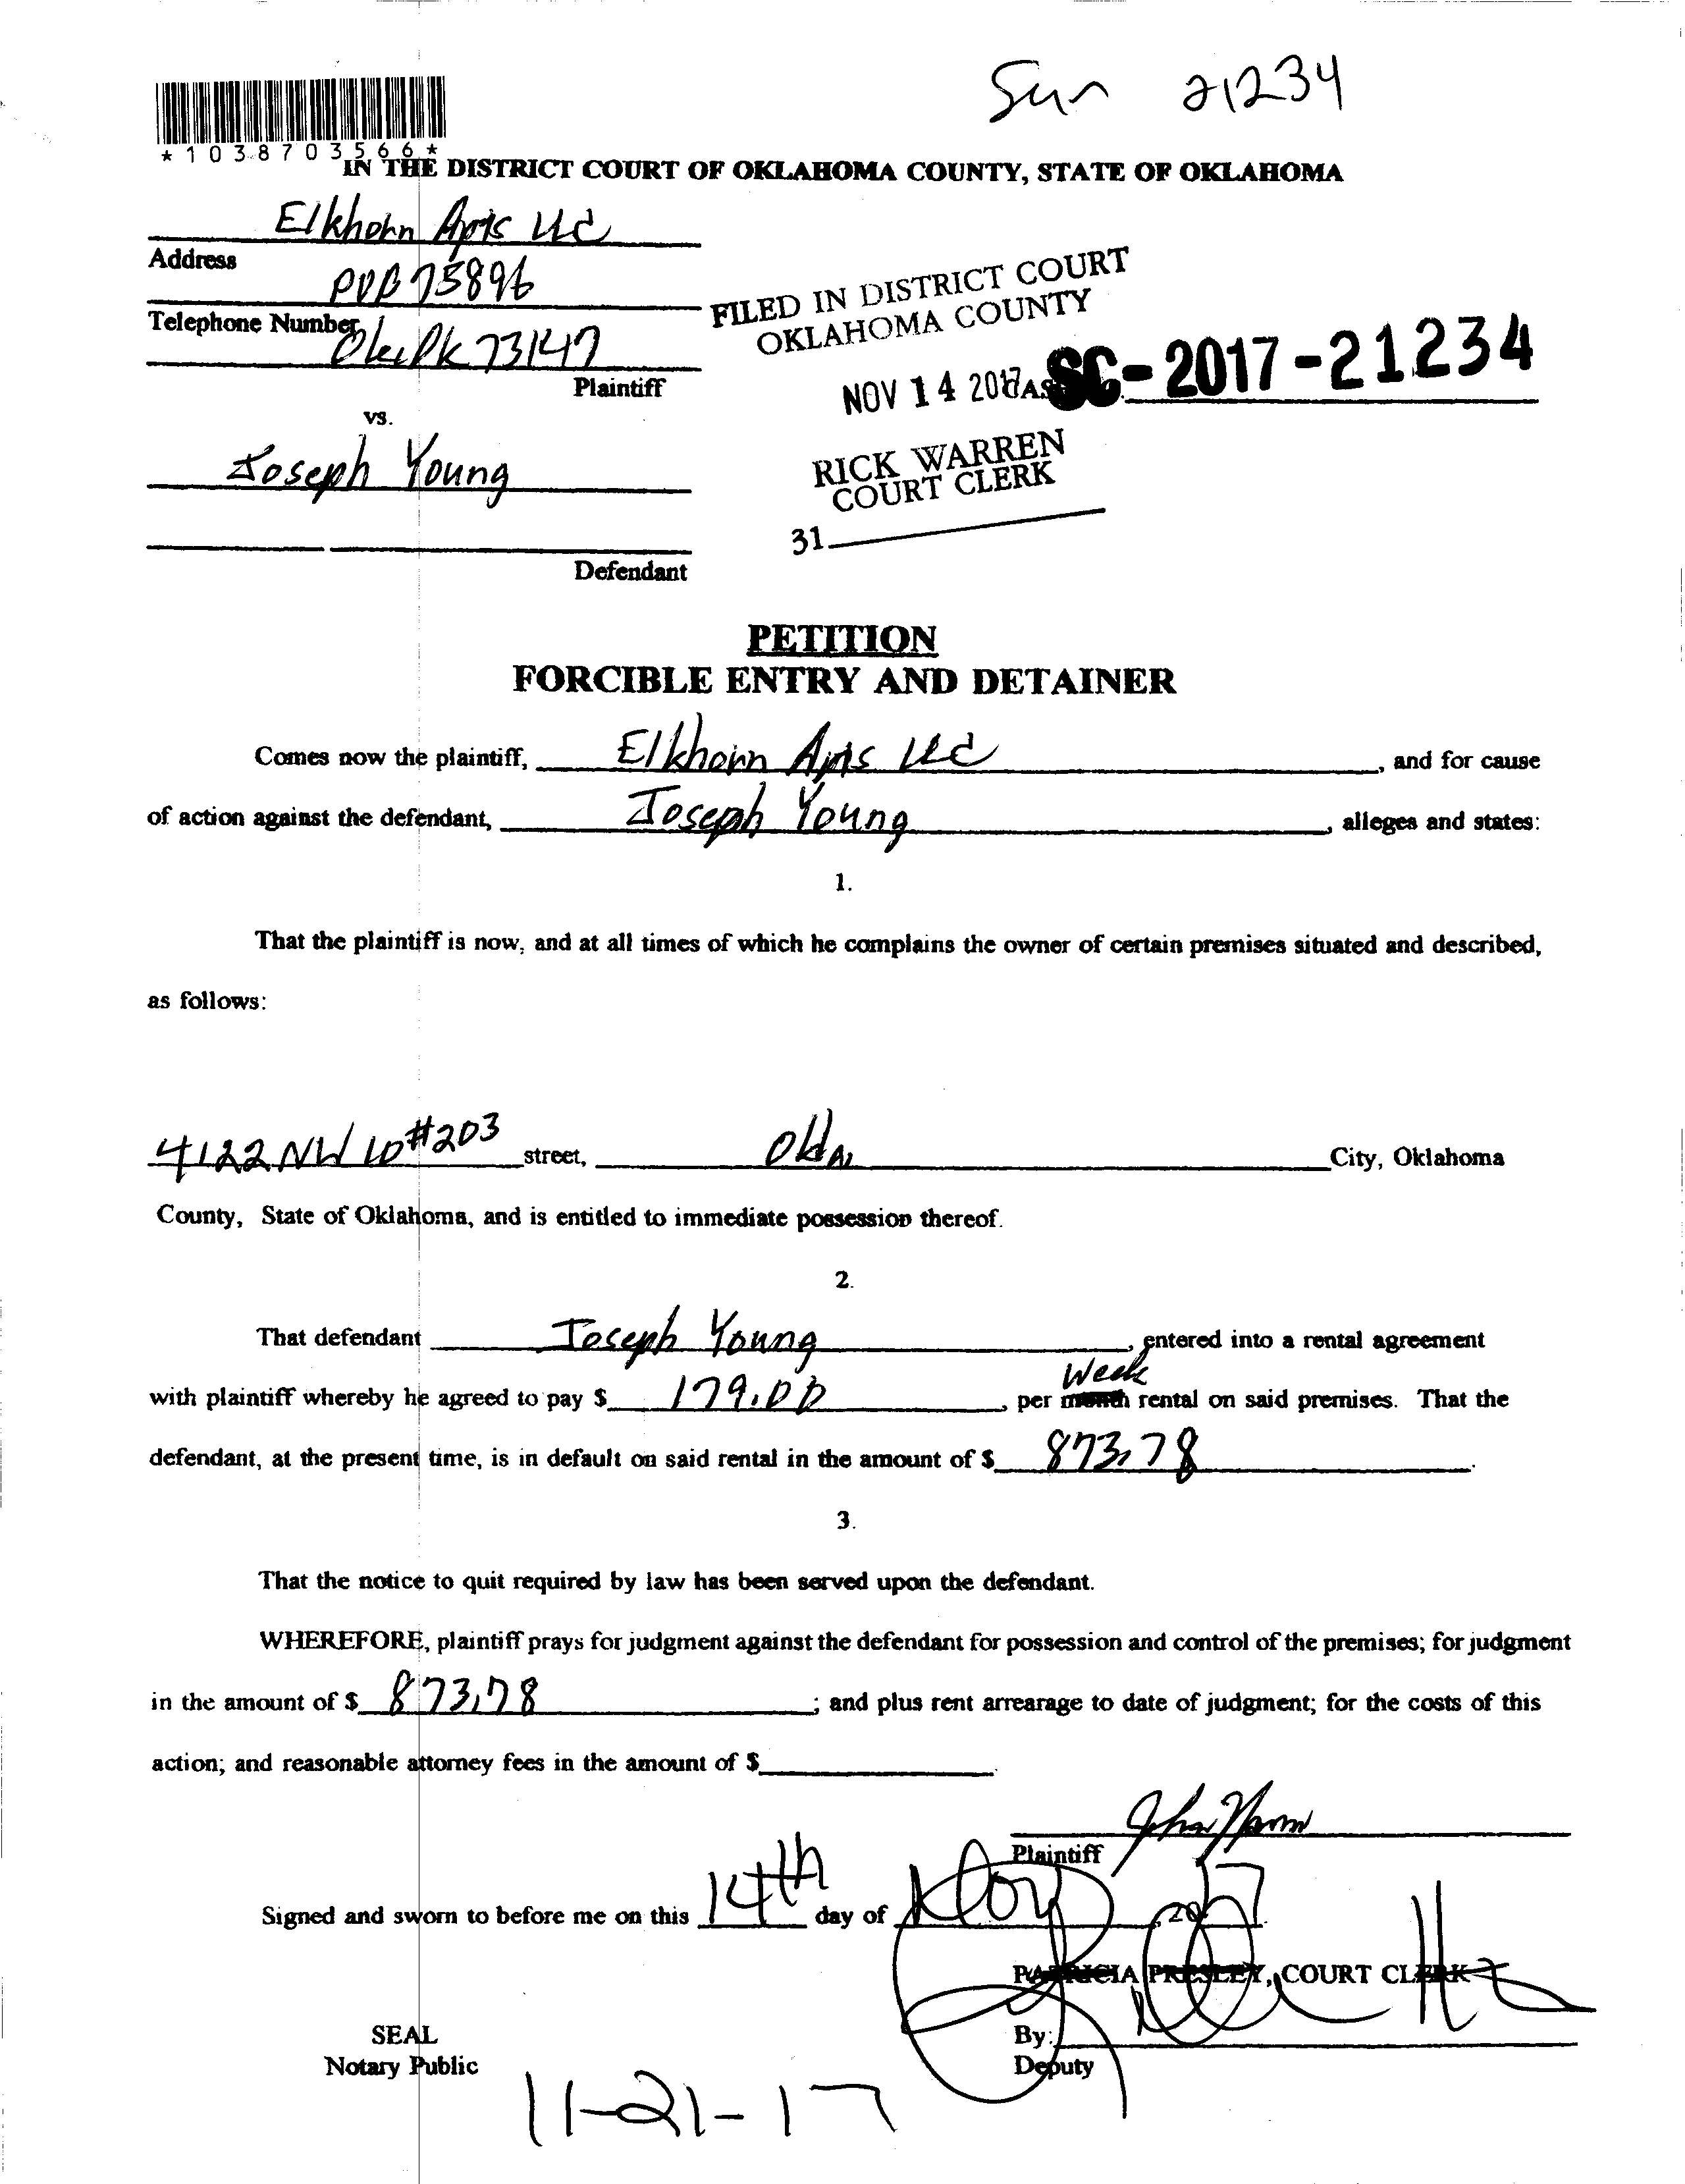 Sun 21234
*1038703566*
IN THE DISTRICT COURT OF OKLAHOMA COUNTY, STATE OF OKLAHOMA
Elkhorn Apts LLC
Address
POB 75896
Telephone Number
Okc Ok 73147
Plaintiff
vs.
Joseph Young
Defendant
FILED IN DISTRICT COURT
OKLAHOMA COUNTY
NOV 14 2017
SC-2017-21234
RICK WARREN
COURT CLERK
31
PETITION
FORCIBLE ENTRY AND DETAINER
Comes now the plaintiff, Elkhorn Apts LLC, and for cause
of action against the defendant, Joseph Young, alleges and states:
1.
That the plaintiff is now, and at all times of which he complains the owner of certain premises situated and described,
as follows:
4122 NW 10 #203 street, Okla. City, Oklahoma
County, State of Oklahoma, and is entitled to immediate possession thereof.
2.
That defendant Joseph Young, entered into a rental agreement
with plaintiff whereby he agreed to pay $ 179.00, per month Week rental on said premises. That the
defendant, at the present time, is in default on said rental in the amount of $ 873.78.
3.
That the notice to quit required by law has been served upon the defendant.
WHEREFORE, plaintiff prays for judgment against the defendant for possession and control of the premises; for judgment
in the amount of $ 873.78; and plus rent arrearage to date of judgment; for the costs of this
action; and reasonable attorney fees in the amount of $
Plaintiff
Signed and sworn to before me on this 14th day of Nov, 2017.
PATRICIA PRESLEY, COURT CLERK
SEAL
Notary Public
By:
Deputy
11-21-17